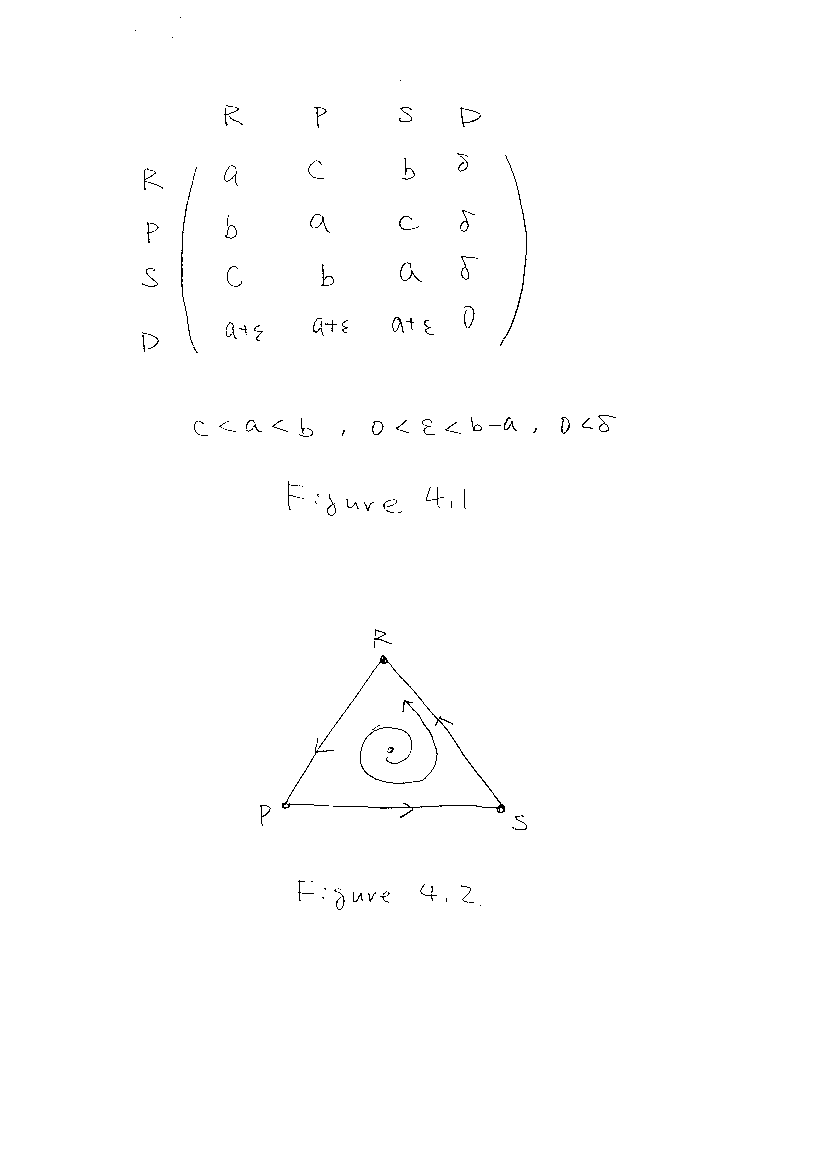 R P S D
R a c b δ
P b a c δ
S c b a δ
D a+ε a+ε a+ε 0
c < a < b , 0 < ε < b-a , 0 < δ
Figure 4.1
R
P S
Figure 4.2.